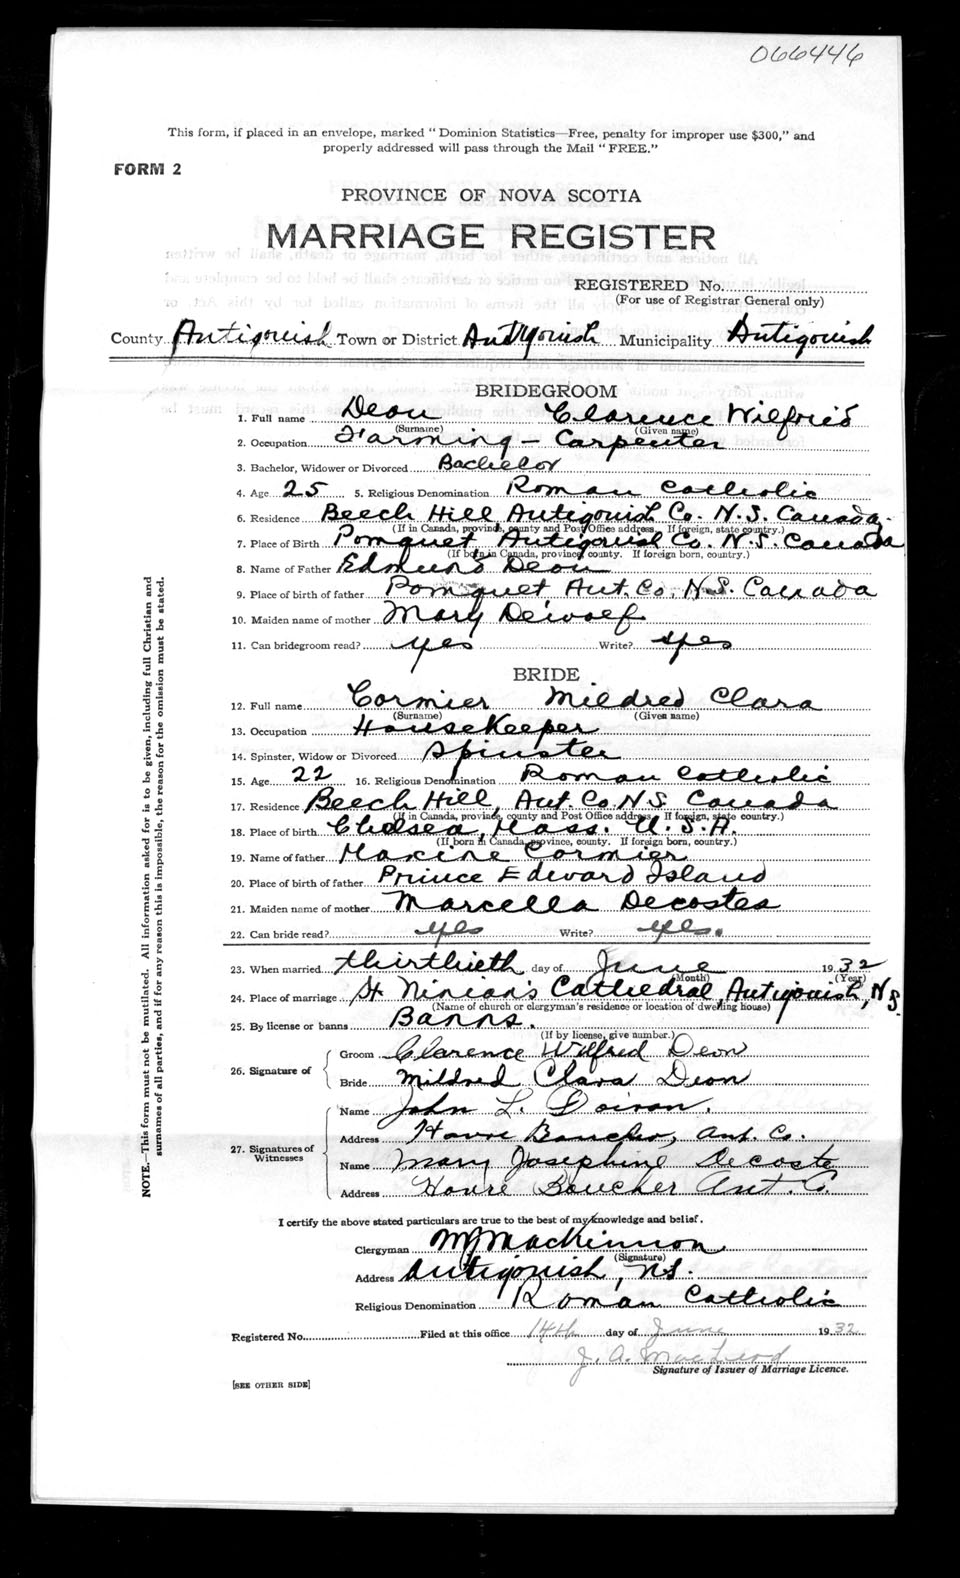 066446
This form, if placed in an envelope, marked "Dominion Statistics—Free, penalty for improper use $300," and
properly addressed will pass through the Mail "FREE."
FORM 2
PROVINCE OF NOVA SCOTIA
MARRIAGE REGISTER
REGISTERED No.
(For use of Registrar General only)
County Antigonish Town or District Antigonish Municipality Antigonish
BRIDEGROOM
1. Full name Deon Clarence Wilfried
(Surname) (Given name)
2. Occupation Farming - Carpenter
3. Bachelor, Widower or Divorced Bachelor
4. Age 25 5. Religious Denomination Roman Catholic
6. Residence Beech Hill Antigonish Co. N.S. Canada.
(If in Canada, province, county and Post Office address. If foreign, state country.)
7. Place of Birth Pomquet Antigonish Co. N.S. Canada
(If born in Canada, province, county. If foreign born, country.)
8. Name of Father Edmund Deon
9. Place of birth of father Pomquet Ant. Co. N.S. Canada
10. Maiden name of mother Mary Dewolf
11. Can bridegroom read? yes Write? yes
BRIDE
12. Full name Cormier Mildred Clara
(Surname) (Given name)
13. Occupation HouseKeeper
14. Spinster, Widow or Divorced Spinster
15. Age 22 16. Religious Denomination Roman Catholic
17. Residence Beech Hill, Ant. Co. N.S. Canada
(If in Canada, province, county and Post Office address. If foreign, state country.)
18. Place of birth Chelsea, Mass. U.S.A.
(If born in Canada, province, county. If foreign born, country.)
19. Name of father Maxine Cormier
20. Place of birth of father Prince Edward Island
21. Maiden name of mother Marcella Decostes
22. Can bride read? yes Write? yes.
23. When married thirthieth day of June 1932
(Month) (Year)
24. Place of marriage St Ninian's Cathedral, Antigonish, N.S.
(Name of church or clergyman's residence or location of dwelling house)
25. By license or banns Banns.
(If by license, give number.)
26. Signature of
Groom Clarence Wilfred Deon
Bride Mildred Clara Deon
27. Signatures of Witnesses
Name John L. Doiron.
Address Havre Boucher, Ant. Co.
Name Mary Josephine Decoste
Address Havre Boucher Ant. C.
I certify the above stated particulars are true to the best of my knowledge and belief.
Clergyman MacKinnon
(Signature)
Address Antigonish, N.S.
Religious Denomination Roman Catholic
Registered No. Filed at this office 14th day of June 1932
J. A. MacLeod
Signature of Issuer of Marriage Licence.
[SEE OTHER SIDE]
NOTE.—This form must not be mutilated. All information asked for is to be given, including full Christian and
surnames of all parties, and if for any reason this is impossible, the reason for the omission must be stated.